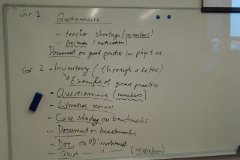 Gr 1 Questionnaire
- teacher shortage / (members)
Document on good practice in phys. ed
Gr 2 - Inventory (through letter)
Examples of good practices
- Questionnaire (members)
- Literature review
- Case study on benchmarks
- Document on benchmarks
- Doc. on PD involvment
- (members)